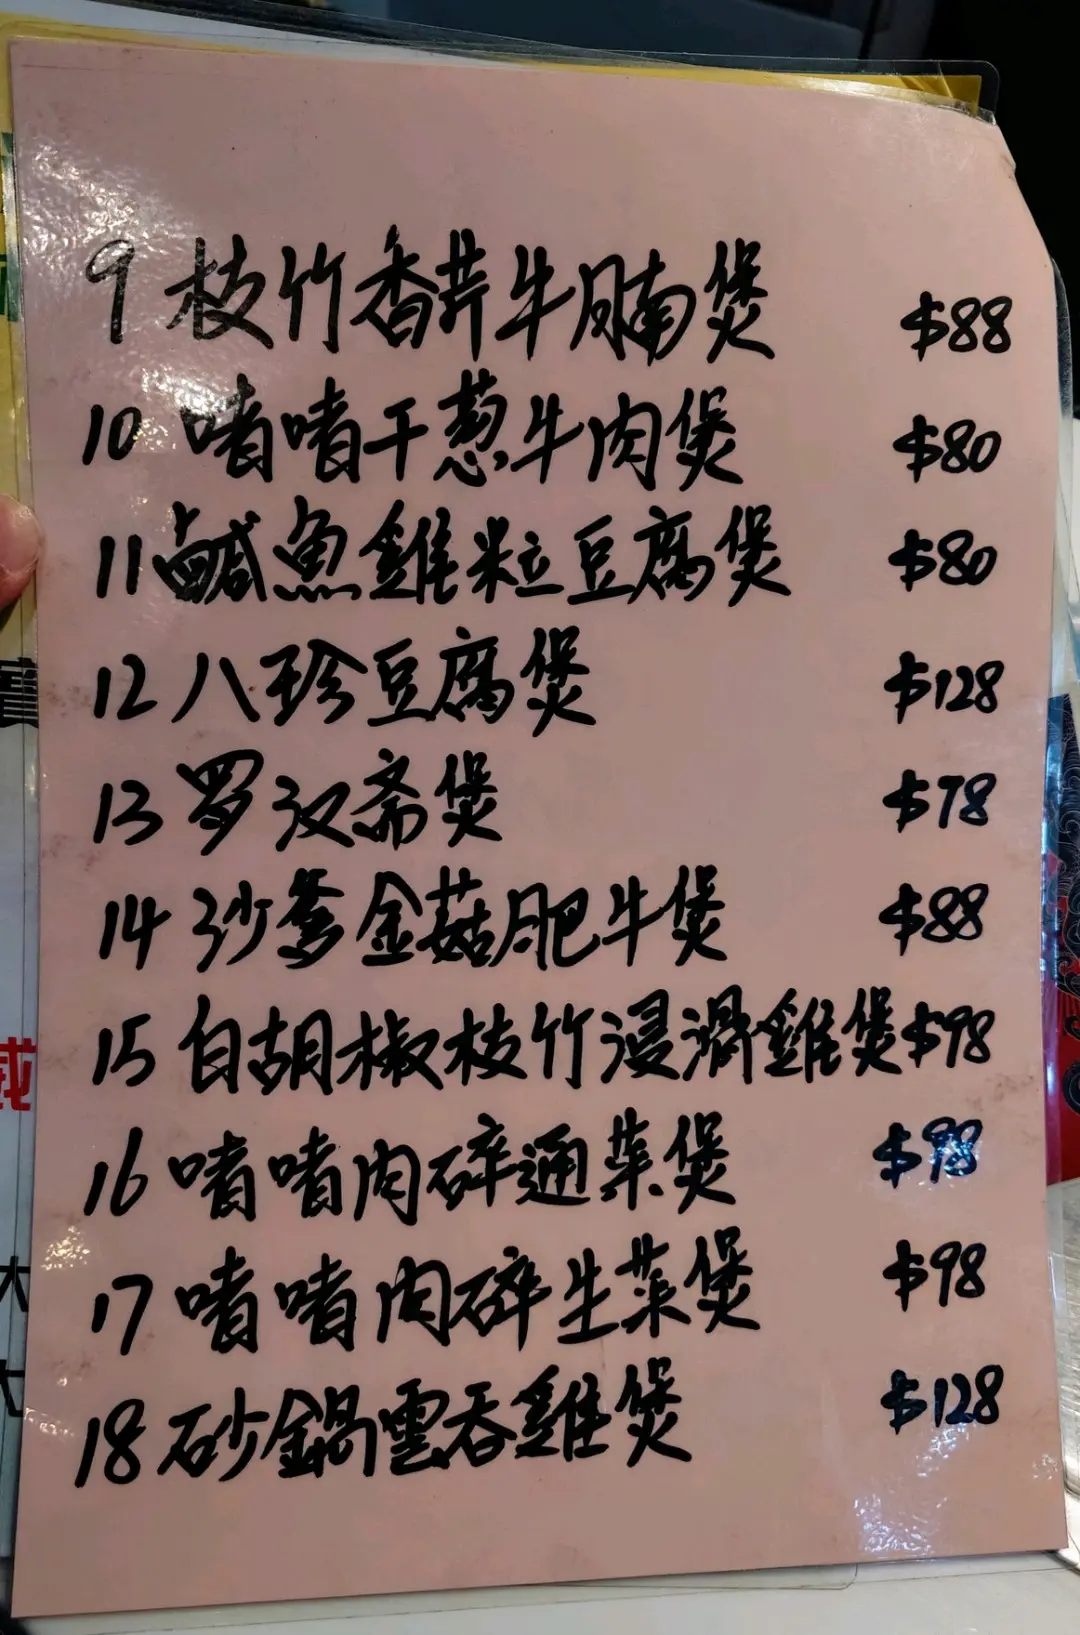 9 枝竹香芹牛腩煲 $88
10 啫啫干葱牛肉煲 $80
11 鹹魚雞粒豆腐煲 $80
12 八珍豆腐煲 $128
13 罗汉斋煲 $78
14 沙爹金菇肥牛煲 $88
15 白胡椒枝竹浸滑雞煲 $98
16 啫啫肉碎通菜煲 $98
17 啫啫肉碎生菜煲 $98
18 砂鍋雲吞雞煲 $128